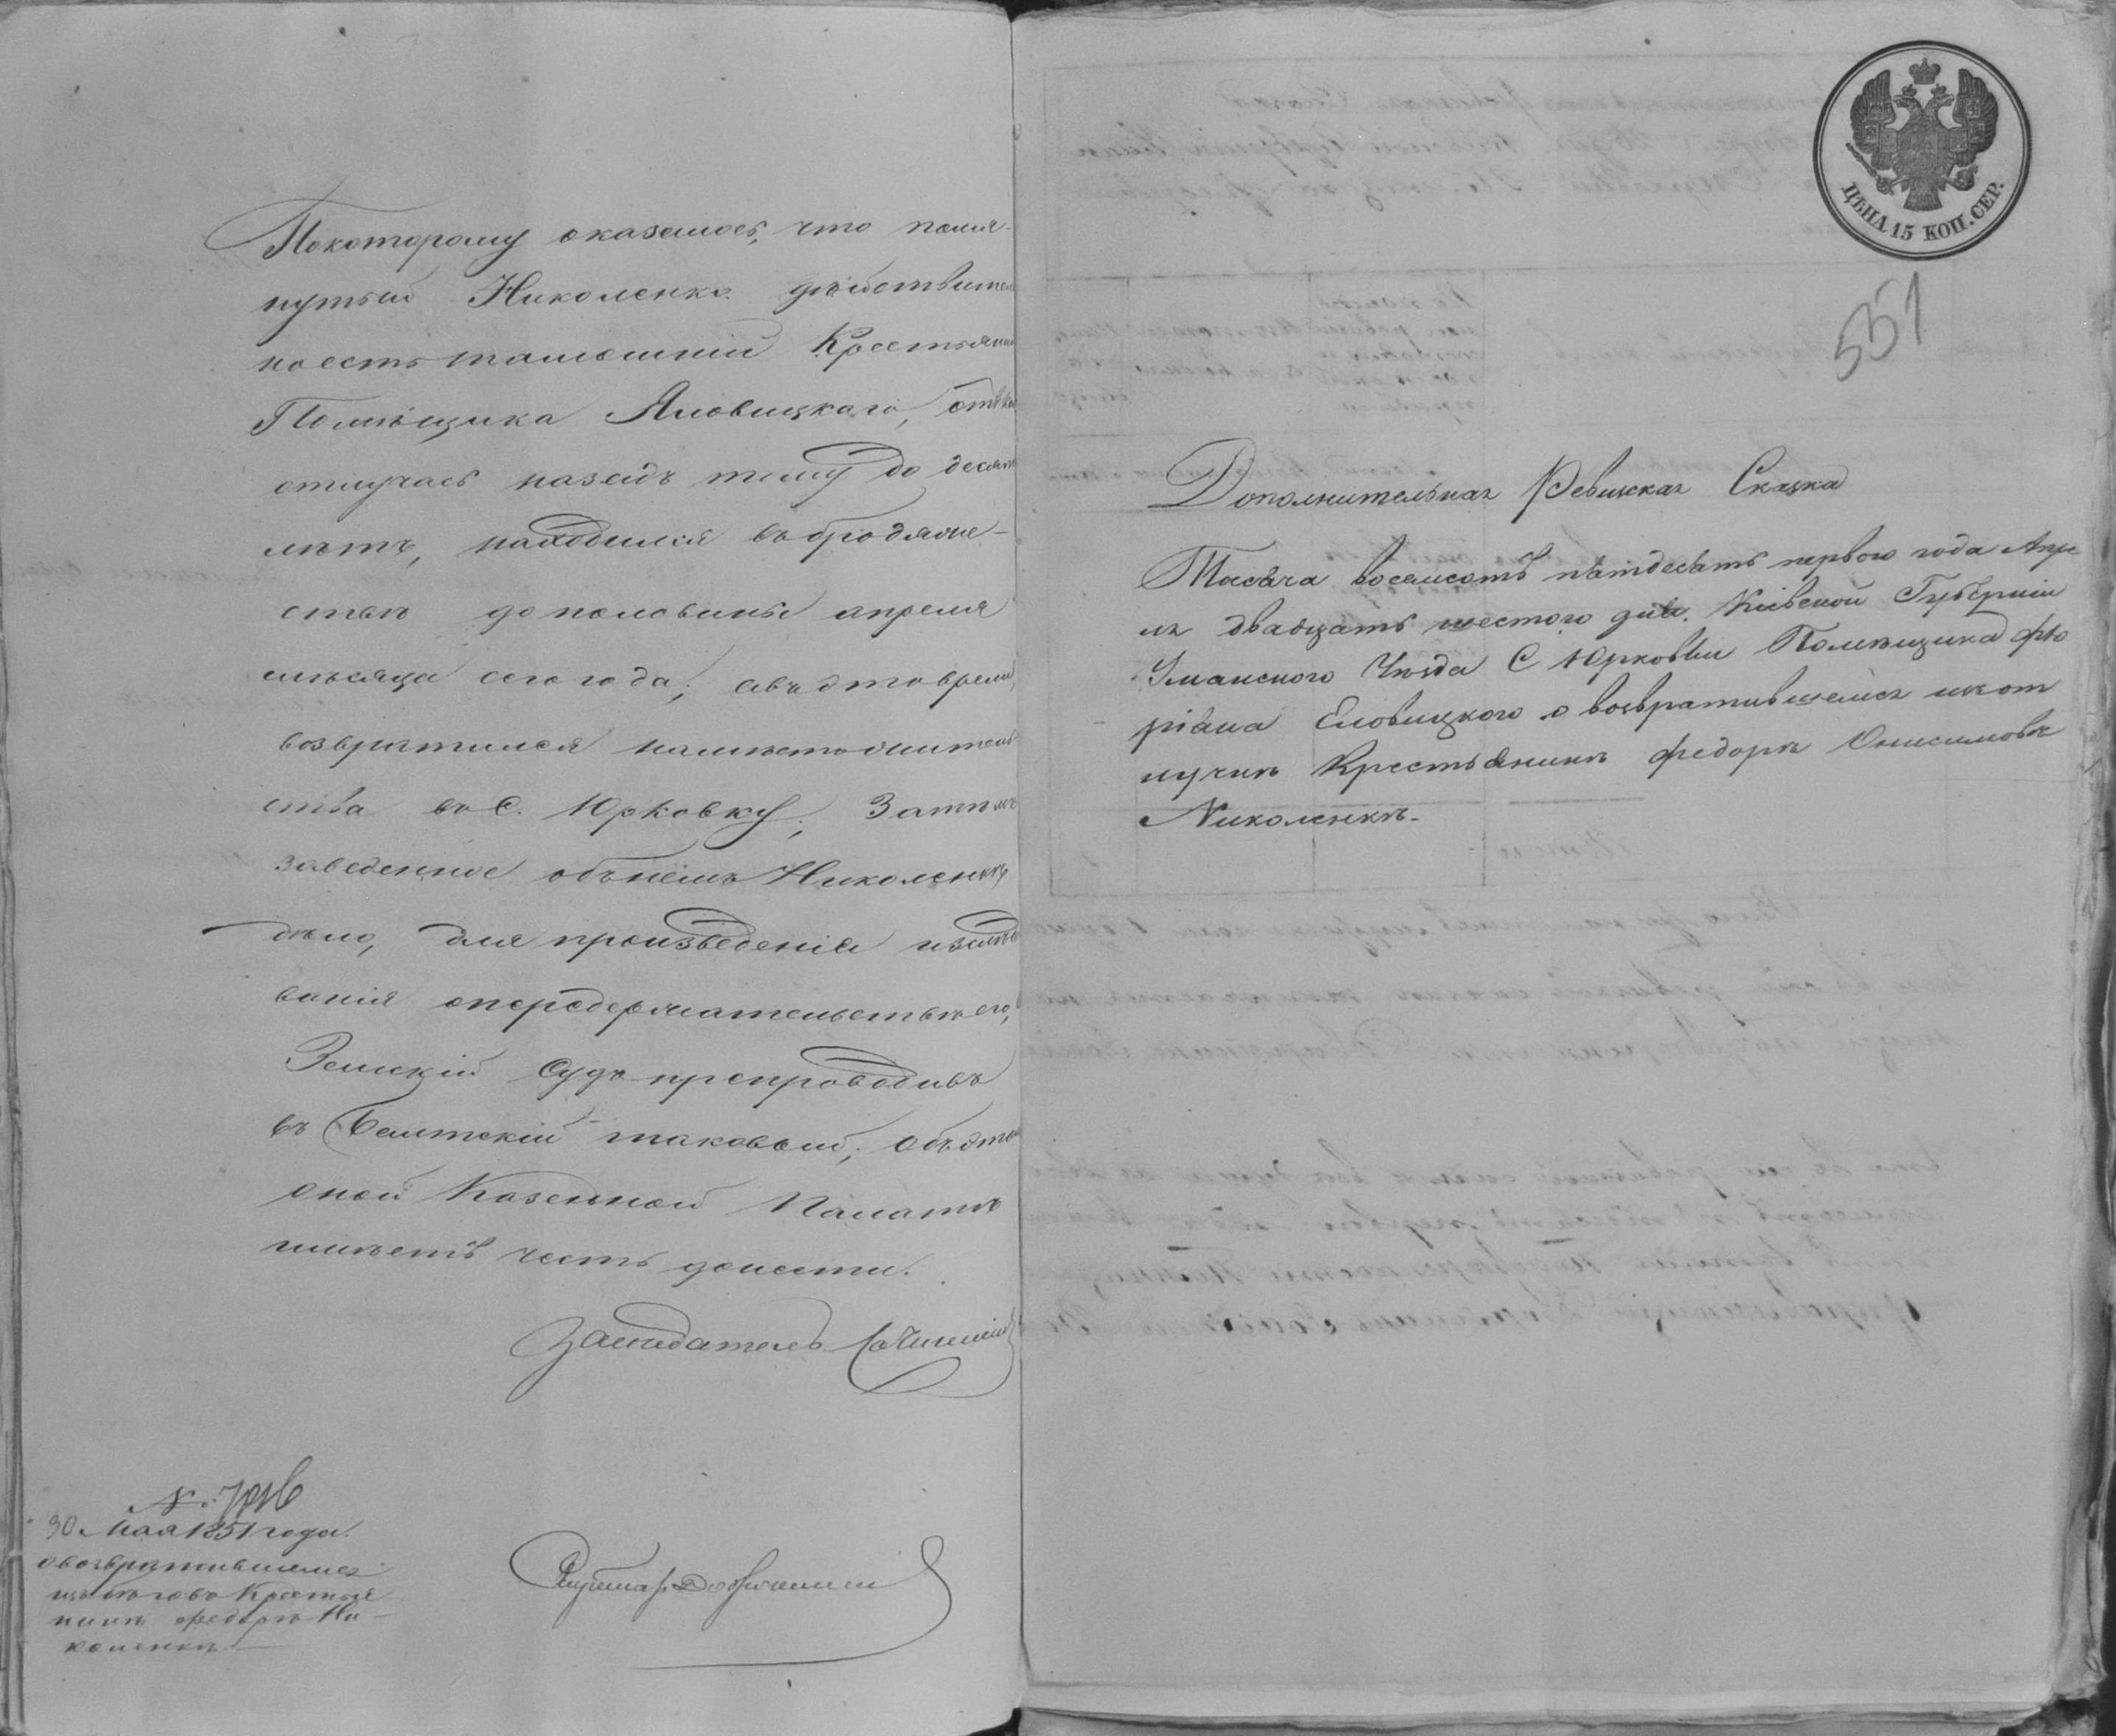 Покоторому оказалось, что помя-
нутый Николенко действитель
но есть тамошний Крестьянин
Помѣщика Яловицкаго,
отлучась назадъ тому до десяти
лѣтъ, находился въ бродяже-
ствѣ до половины апреля
мѣсяца сего года; а въ это время,
возвратился на мѣсто житель
ства въ С. Юрковку; Затѣмъ
заведенное объ нёмъ Николенкѣ
дѣло, для произведенія изслѣдо
ванія о передержательствѣ его,
Земскій Судъ препроводивъ
въ Балтскій таковый; объ этомъ
оной Казенной Палатѣ
имѣетъ честь донести.
Засѣдатель
30 Мая 1851 года.
о возвратившемся
изъ бѣговъ Крестья
нинѣ Федорѣ Ни-
коленкѣ.
ЦѢНА 15 КОП. СЕР.
551
Дополнительная Ревизская Сказка
Тысяча восемсотъ пятдесятъ первого года Апре
ля двадцать шестого дня. Кіевской Губерніи
Уманского Уѣзда С Юрковки Помѣщика Фло
ріана Еловицкого о возвратившемся изъ от
лучки Крестьянинѣ Федорѣ Онисимовѣ
Николенкѣ.